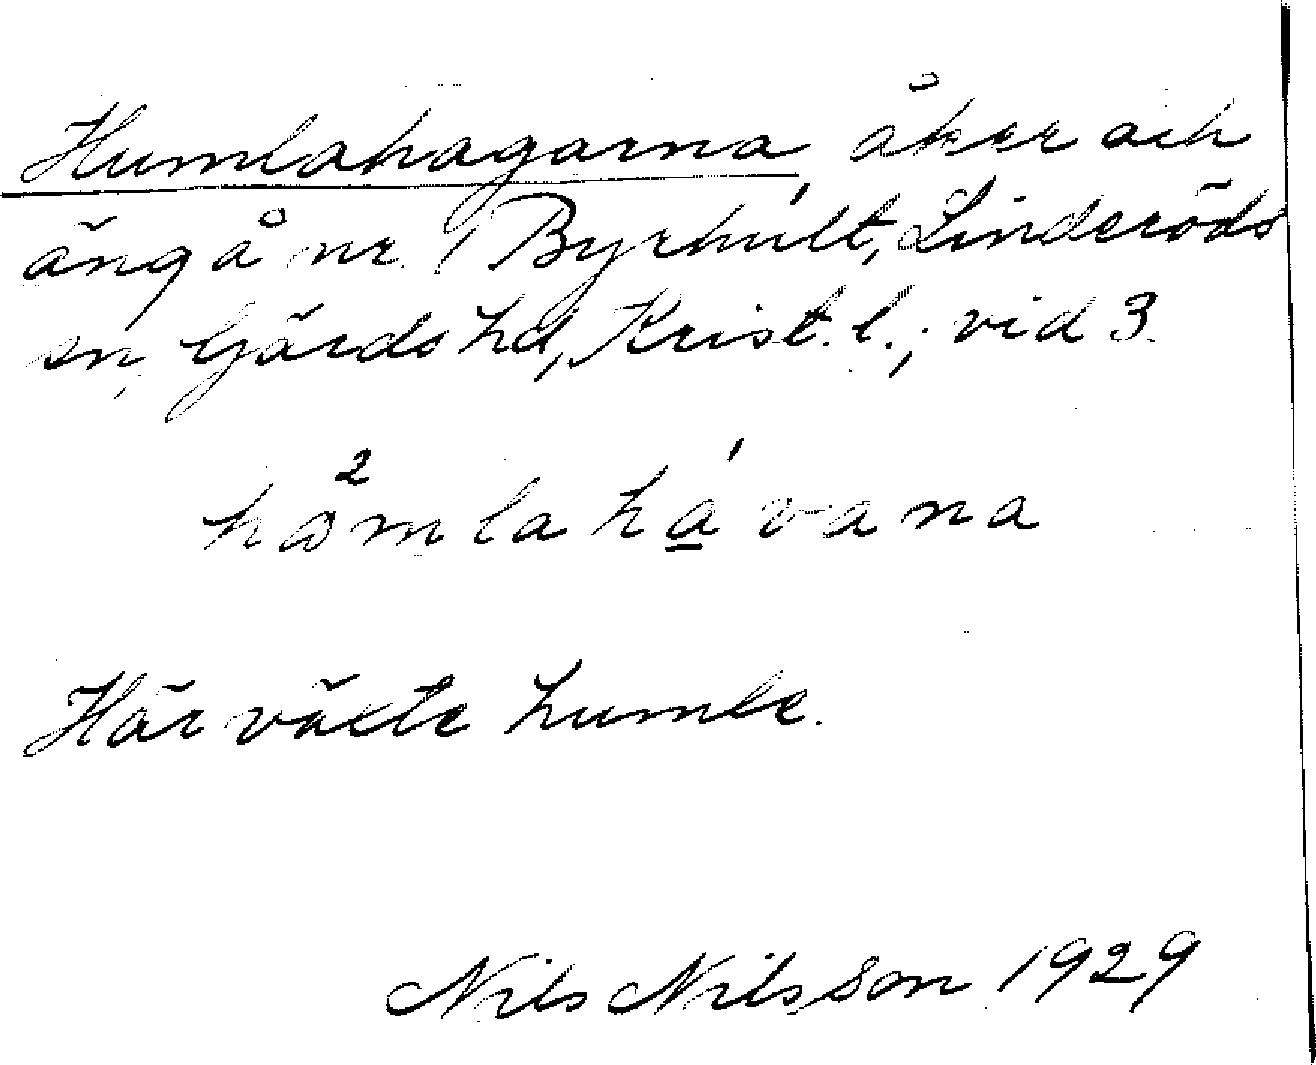 Humlahagarna, åker och
äng å nr. 1 Byrhult, Linderöds
sn, Gärds hd, Krist. l.; vid 3.
hå²mlaha̲'vana
Här växte humle.
Nils Nilsson 1929